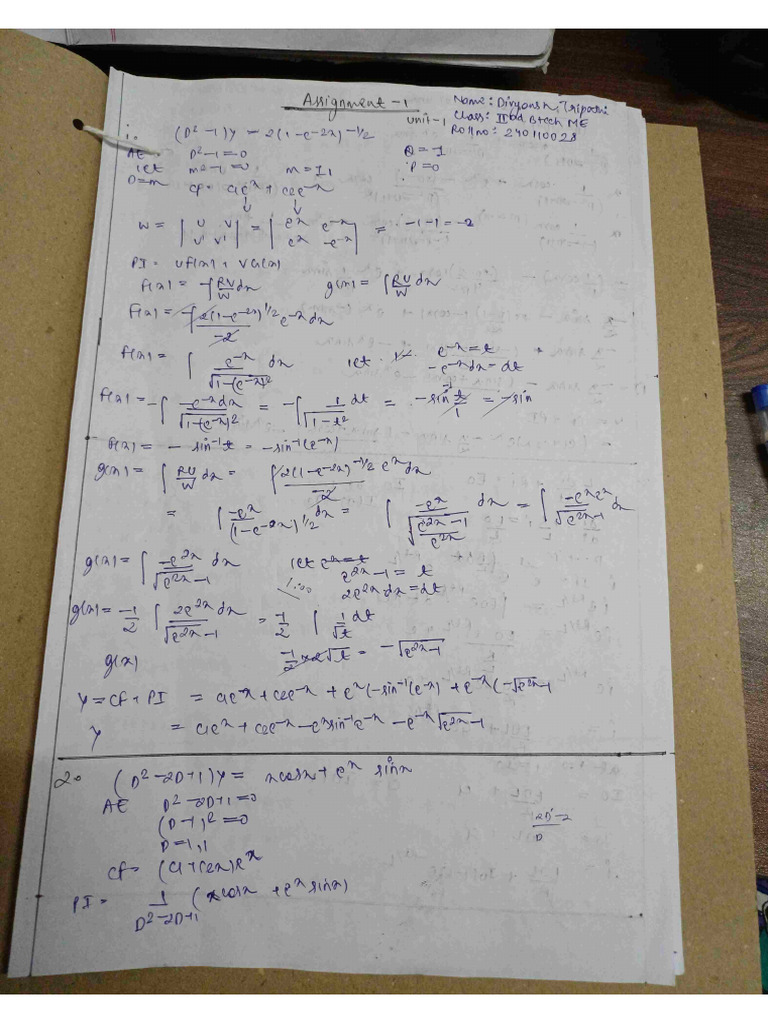 Assignment -1
Unit-1
Name: Divyansh Tripathi
Class: IInd Btech ME
Rollno: 240110028
1. (D²-1)y = 2(1-e-2x)-1/2
AE D²-1=0 Q=-1
let m2-1=0 m=1, P=0
D=m CF= c1e^x + c2e^-x
U V
W = | U V U' V' | = | e^x e^-x e^x -e^-x | = -1-1=-2
PI = Uf(x) + Vg(x)
f(x) = -∫RV/W dx g(x) = ∫RU/W dx
f(x) = -∫2(1-e-2x)-1/2 e-x dx / -2
f(x) = ∫ e-x/√1-(e-x)2 dx let e-x=t
-e-x dx = dt
f(x) = -∫ -e-x dx/√1-(e-x)2 = -∫ 1/√1-t2 dt = -sin-1 t/1 = -sin
f(x) = - sin-1 t = -sin-1(e-x)
g(x) = ∫RU/W dx = ∫2(1-e-2x)-1/2 ex dx / -2
= ∫ -ex/(1-e-2x)1/2 dx = ∫ -ex/√(e2x-1/e2x) dx = ∫ -ex ex/√e2x-1 dx
g(x) = ∫ -e2x/√e2x-1 dx let ex=t
e2x-1 = t
2e2x dx = dt
g(x) = -1/2 ∫ 2e2x dx/√e2x-1 = -1/2 ∫ 1/√t dt
g(x) -1/2 × 2√t = -√e2x-1
y = CF + PI = c1ex + c2e-x + ex(-sin-1(e-x)) + e-x(-√e2x-1
y = c1ex + c2e-x - exsin-1e-x - e-x√e2x-1
2. (D²-2D+1)y = xcosx + ex sinx
AE D²-2D+1=0
(D-1)²=0
D=1,1
CF= (c1+c2x)ex
PI = 1/D²-2D+1 (xcosx + ex sinx)